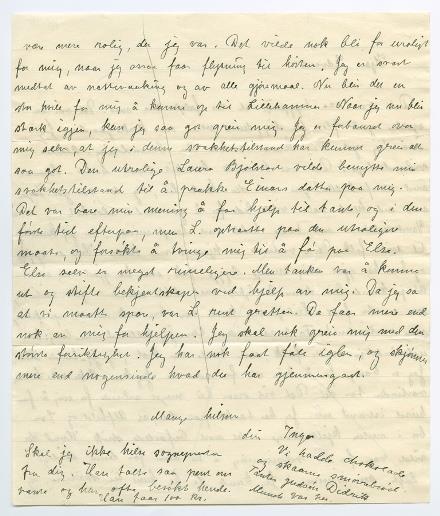 være mere rolig, der jeg var. Det vilde nok bli for uroligt
for mig, naar jeg ogsaa faar flytning til høsten. Jeg er svært
medtat av nattevaaking og av alle gjøremaal. Nu blir det en
stor hvile for mig å komme op til Lillehammer. Naar jeg nu blir
sterk igjen, kan jeg saa godt greie mig. Jeg er forbauset over
mig selv at jeg i denne svakhetstilstand har kunnet greie alt
saa godt. Den utrolige Laura Bjølstad vilde benytte min
svakhetstilstand til å prakke Einars datter paa mig.
Det var bare min mening å faa hjelp til tante, og i den
første tid efterpaa, men L. optraatte paa den utroligste
maate, og forsøkte å tvinge mig til å få paa Else.
Else selv er meget rimeligere. Men tanken var å komme
ut og stifte bekjentskaper ved hjelp av mig. Da jeg sa
at vi maatte spare, var L. rent gratten. Da faar mere end
nok av mig for hjelpen. Jeg skal nok greie mig med den
største forsiktighet. Jeg har nok faat føle iglen, og skjønner
mere end nogensinde hvad der har gjennemgaat.
Mange hilsen
din Inga
Skal jeg ikke hilse sognepresten
fra dig. Han talte saa pent om
og har ofte besøkt hende.
Han faar 100 kr.
Vi hadde chokolade
og skaarne smørrebrød
Tante Didrikke